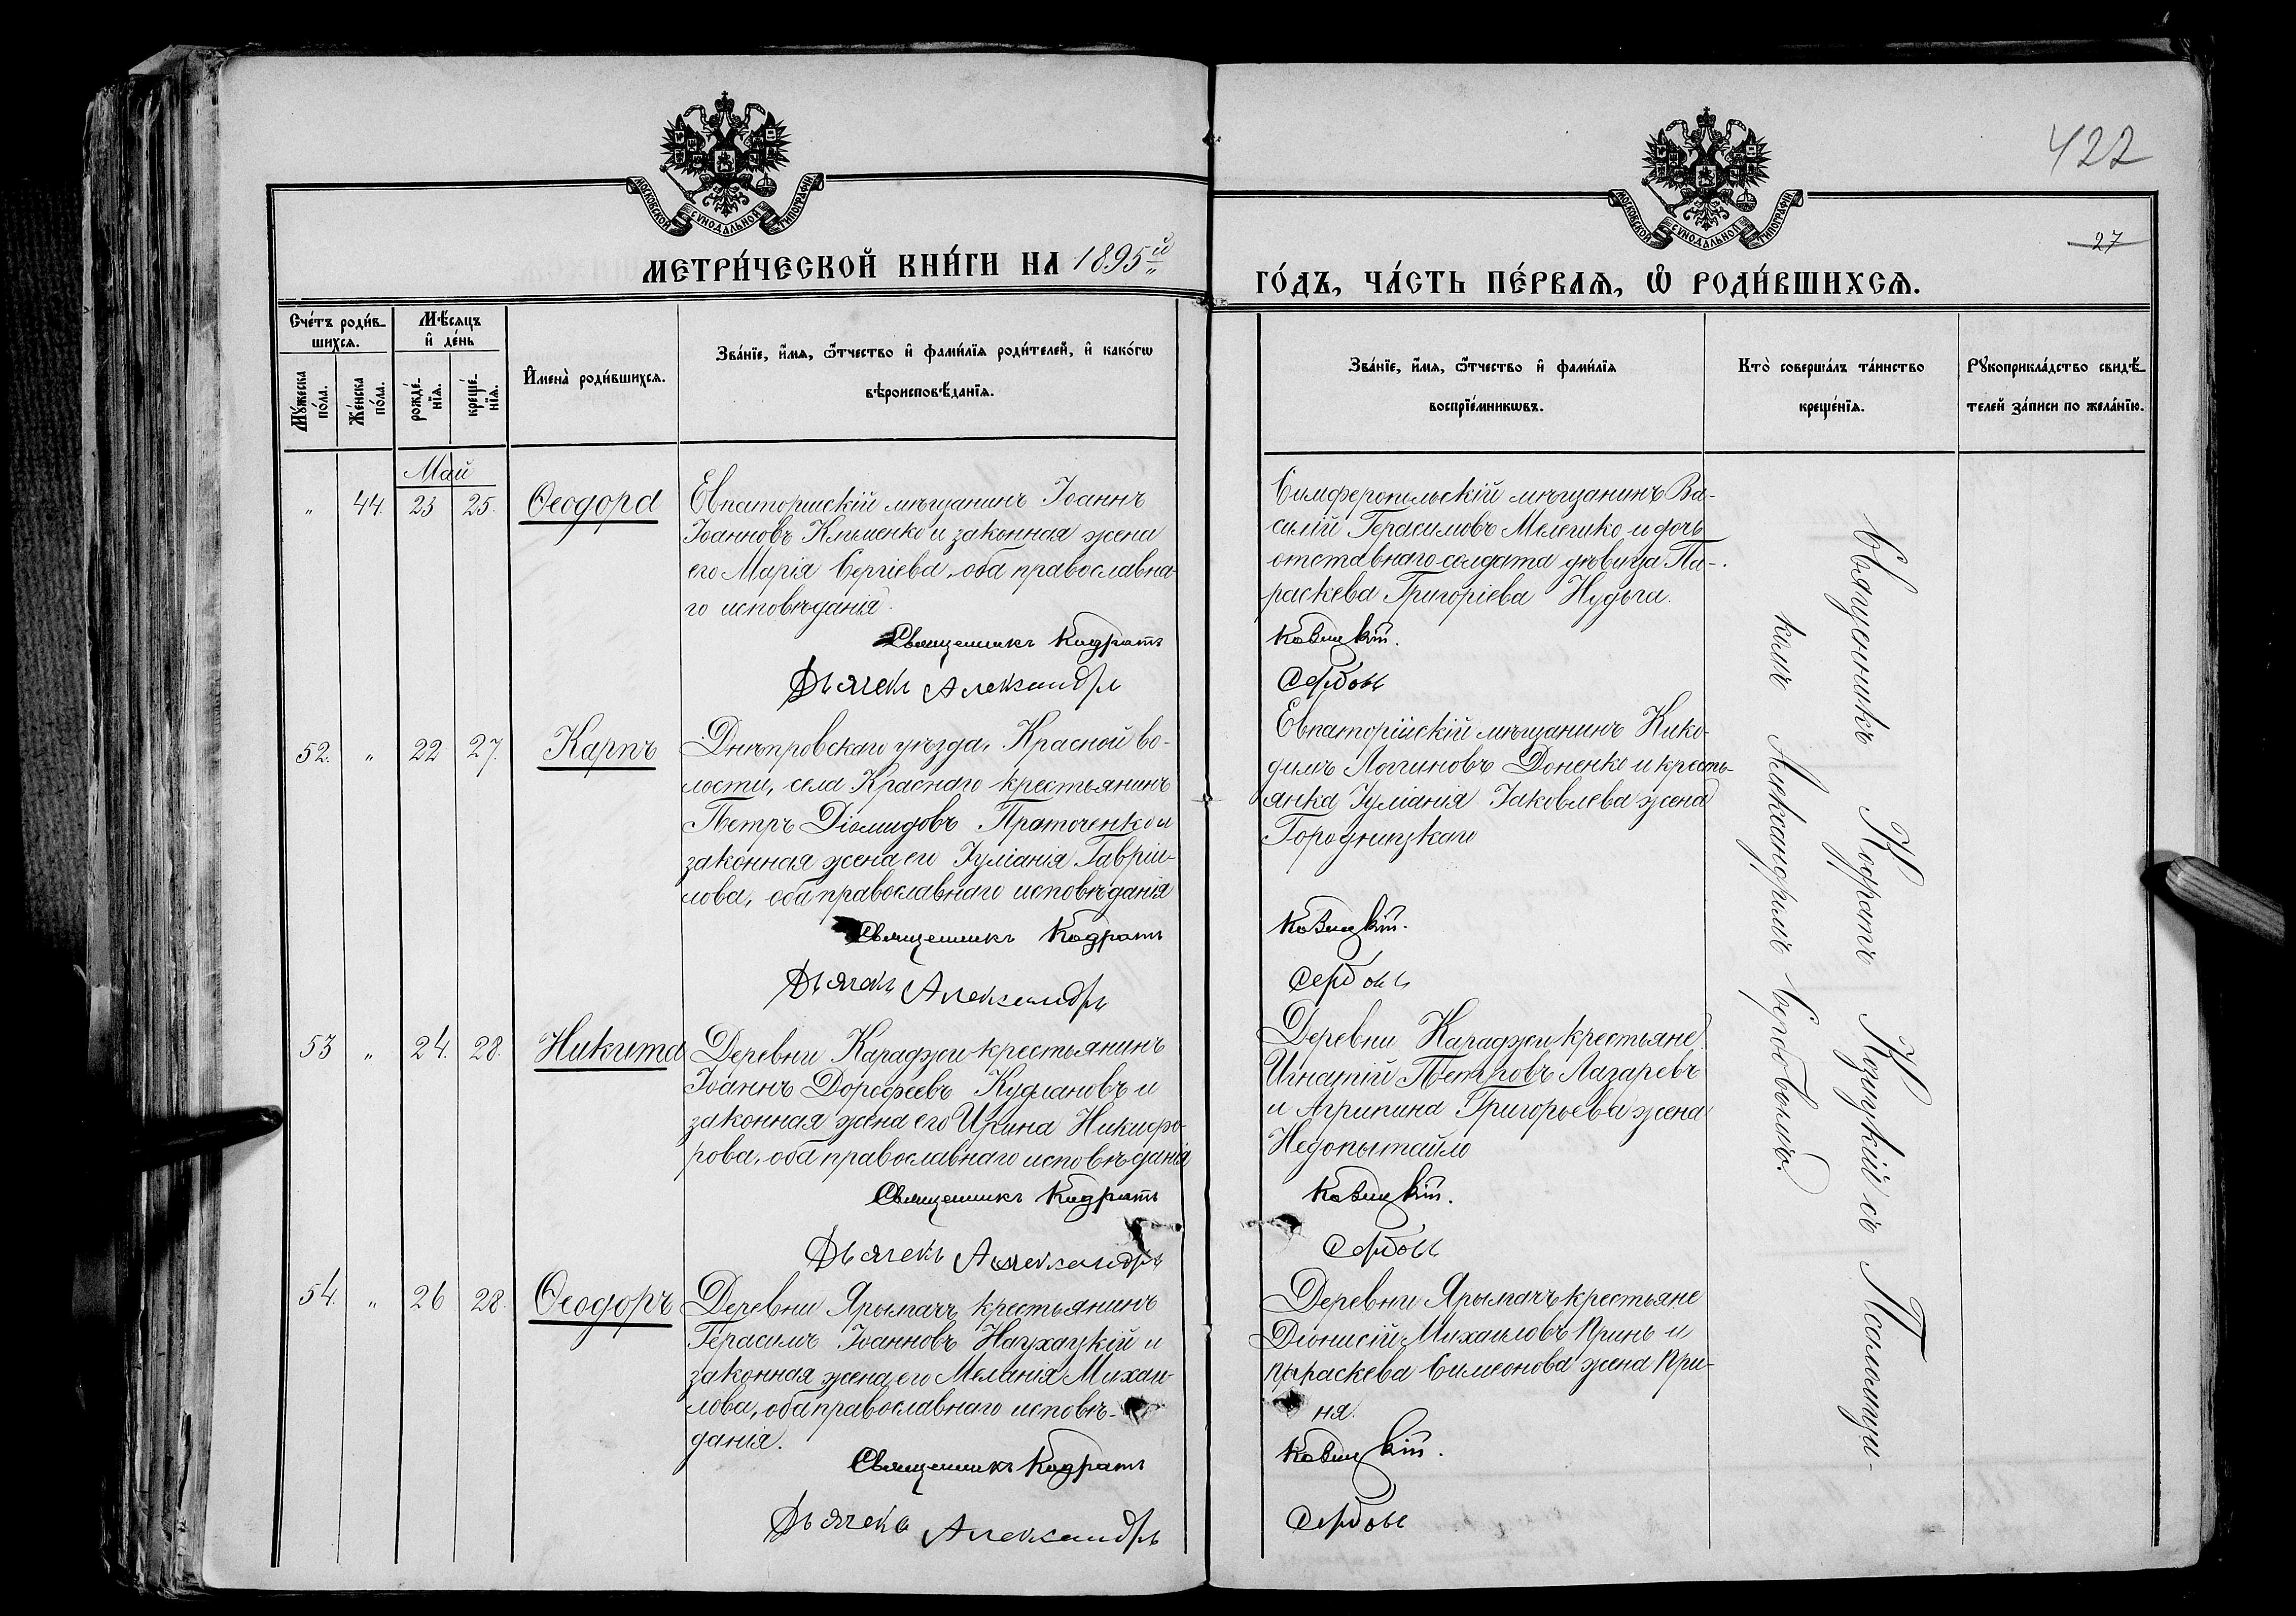 422
27
МОСКОВСКОЙ СѴНОДАЛЬНОЙ ТИПОГРАФІИ
МОСКОВСКОЙ СѴНОДАЛЬНОЙ ТИПОГРАФІИ
МЕТРИ́ЧЕСКОЙ КНИ́ГИ НА 1895й
ГО́ДЪ, ЧА́СТЬ ПЕ́РВАѦ, Ѡ РОДИ́ВШИХСѦ.
Сче́тъ роди́в-
шихсѧ.
Мꙋ́жеска
по́ла.
Же́нска
по́ла.
Мѣ́сѧцъ
и҆ де́нь
рожде́-
нїѧ.
креще́-
нїѧ.
И҆мена̀ роди́вшихсѧ.
Зва́нїе, и҆́мѧ, ѻ҆́тчество и҆ фами́лїѧ роди́телей, и҆ како́гѡ
вѣроисповѣ́данїѧ.
Зва́нїе, и҆́мѧ, ѻ҆́тчество и҆ фами́лїѧ
воспрїе́мникѡвъ.
Кто̀ соверша́лъ та́инство
креще́нїѧ.
Рꙋкоприкла́дство свидѣ́-
телей за́писи по жела́нїю.
Май
" 44. 23 25. Ѳеодора
Евпаторийскій мѣщанинъ Іоаннъ
Іоанновъ Клименко и законная жена
его Марія Сергіева, оба православна-
го исповѣданія.
Священникъ Кодратъ
Дьячекъ Александръ
Симферопольскій мѣщанинъ Ва-
силій Герасимовъ Мелешко и дочь
отставнаго солдата дѣвица Па-
раскева Григоріева Нудьга.
Козицкій.
Сербовъ
52. " 22 27. Карпъ
Днѣпровскаго уѣзда, Красной во-
лости, села Краснаго крестьянинъ
Петръ Діомидовъ Праточенко и
законная жена его Іуліанія Гавріи-
лова, оба православнаго исповѣданія
Священникъ Кодратъ
Дьячекъ Александръ
Евпаторійскій мѣщанинъ Нико-
димъ Логгиновъ Доненко и кресть-
янка Іуліанія Іаковлева жена
Городницкаго
Козицкій.
Сербовъ
53 " 24. 28. Никита
Деревни Караджи крестьянинъ
Іоаннъ Дорофеевъ Кудлановъ и
законная жена его Ирина Никифо-
рова, оба православнаго исповѣданія
Священникъ Кодратъ
Дьячекъ Александръ
Деревни Караджи крестьяне
Игнатій Петровъ Лазаревъ
и Агрипина Григорьева жена
Недопытайло
Козицкій.
Сербовъ
54. " 26 28. Ѳеодоръ
Деревни Ярылгачъ крестьянинъ
Герасимъ Іоанновъ Наухацкій и
законная жена его Меланія Михаи-
лова, оба православнаго исповѣ-
данія.
Священникъ Кодратъ
Дьячекъ Александръ
Деревни Ярылгачъ крестьяне
Діонисій Михаиловъ Принь и
Параскева Симеонова жена При-
ня.
Козицкій.
Сербовъ
Священникъ Кодратъ Козицкій съ Псаломщи-
комъ Александромъ Сербовымъ.